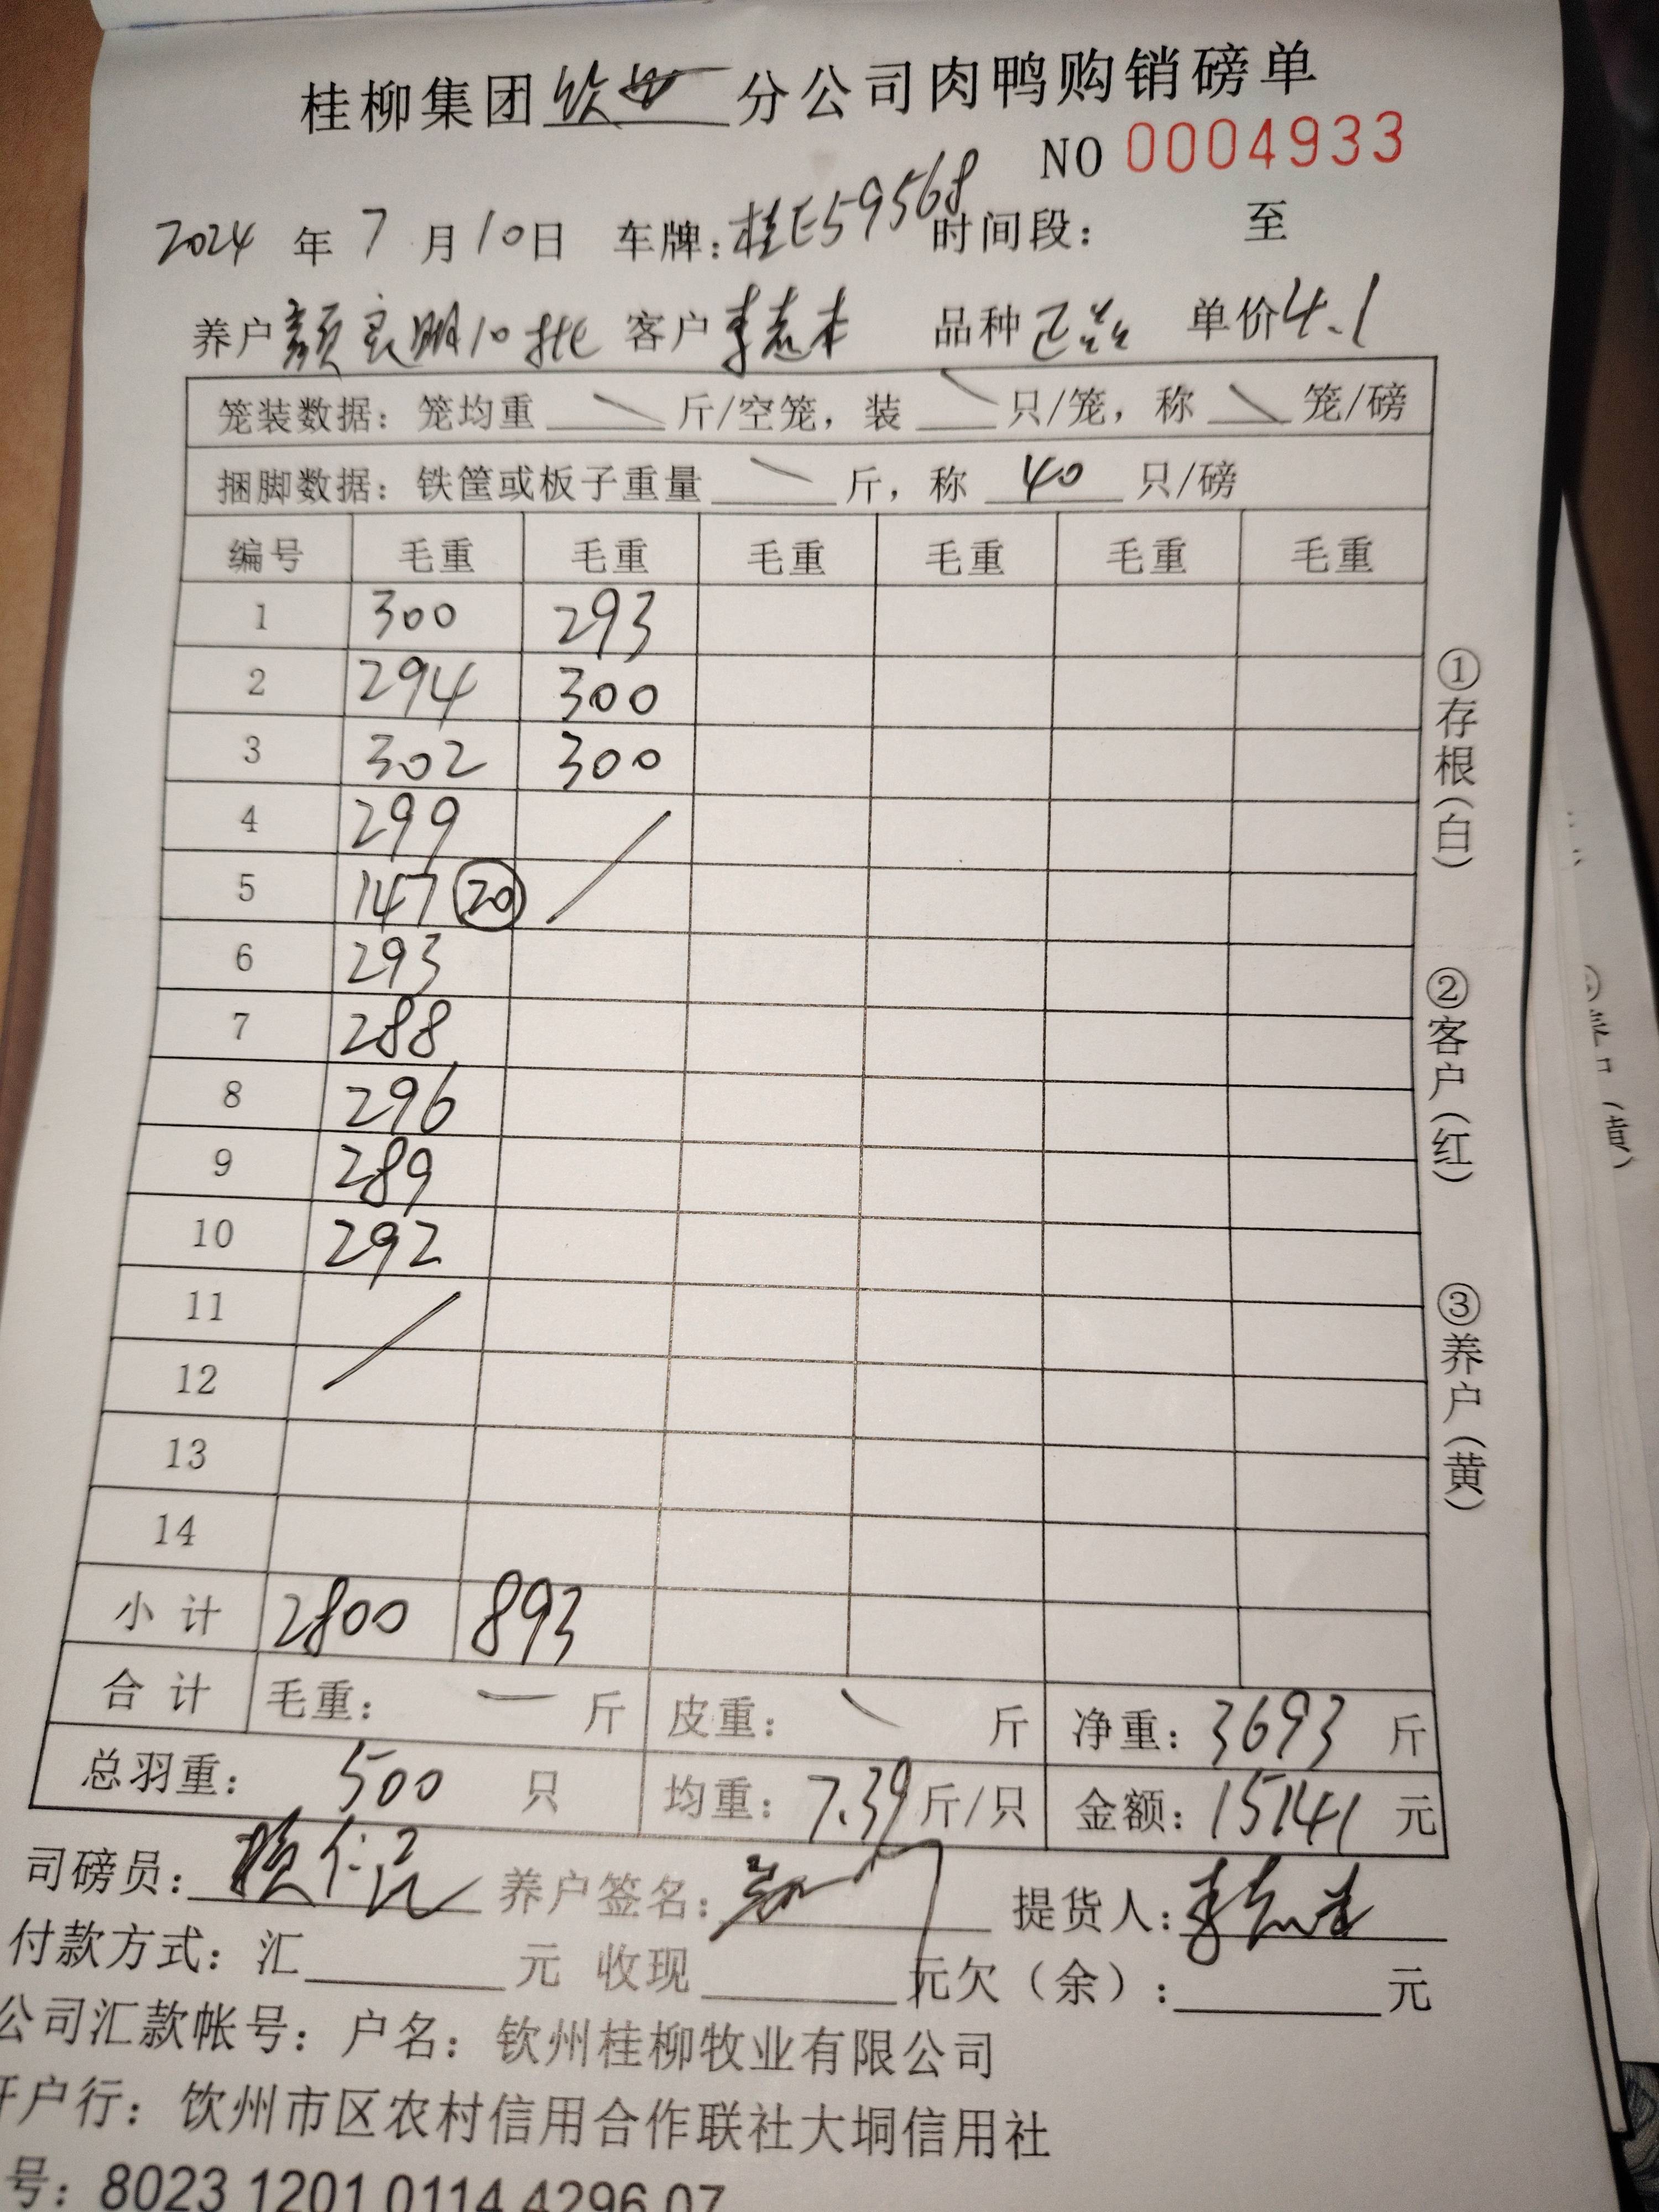 桂柳集团钦州分公司肉鸭购销磅单
NO 0004933
2024 年 7 月 10 日 车牌:桂E59568 时间段: 至
养户 颜良明10批 客户 李志杰 品种 单价4.1
笼装数据: 笼均重 斤/空笼, 装 只/笼, 称 笼/磅
捆脚数据: 铁筐或板子重量 斤, 称 40 只/磅
编号 毛重 毛重 毛重 毛重 毛重 毛重
1 300 293
2 294 300
3 302 300
4 299
5 147 20
6 293
7 288
8 296
9 289
10 292
11
12
13
14
小计 2800 893
合计 毛重: 斤 皮重: 斤 净重: 3693 斤
总羽重: 500 只 均重: 7.39 斤/只 金额: 15141 元
司磅员: 养户签名: 提货人:
付款方式: 汇 元 收现 元欠(余): 元
公司汇款帐号: 户名: 钦州桂柳牧业有限公司
开户行: 钦州市区农村信用合作联社大垌信用社
号: 8023 1201 0114 4296 07
①存根(白)
②客户(红)
③养户(黄)